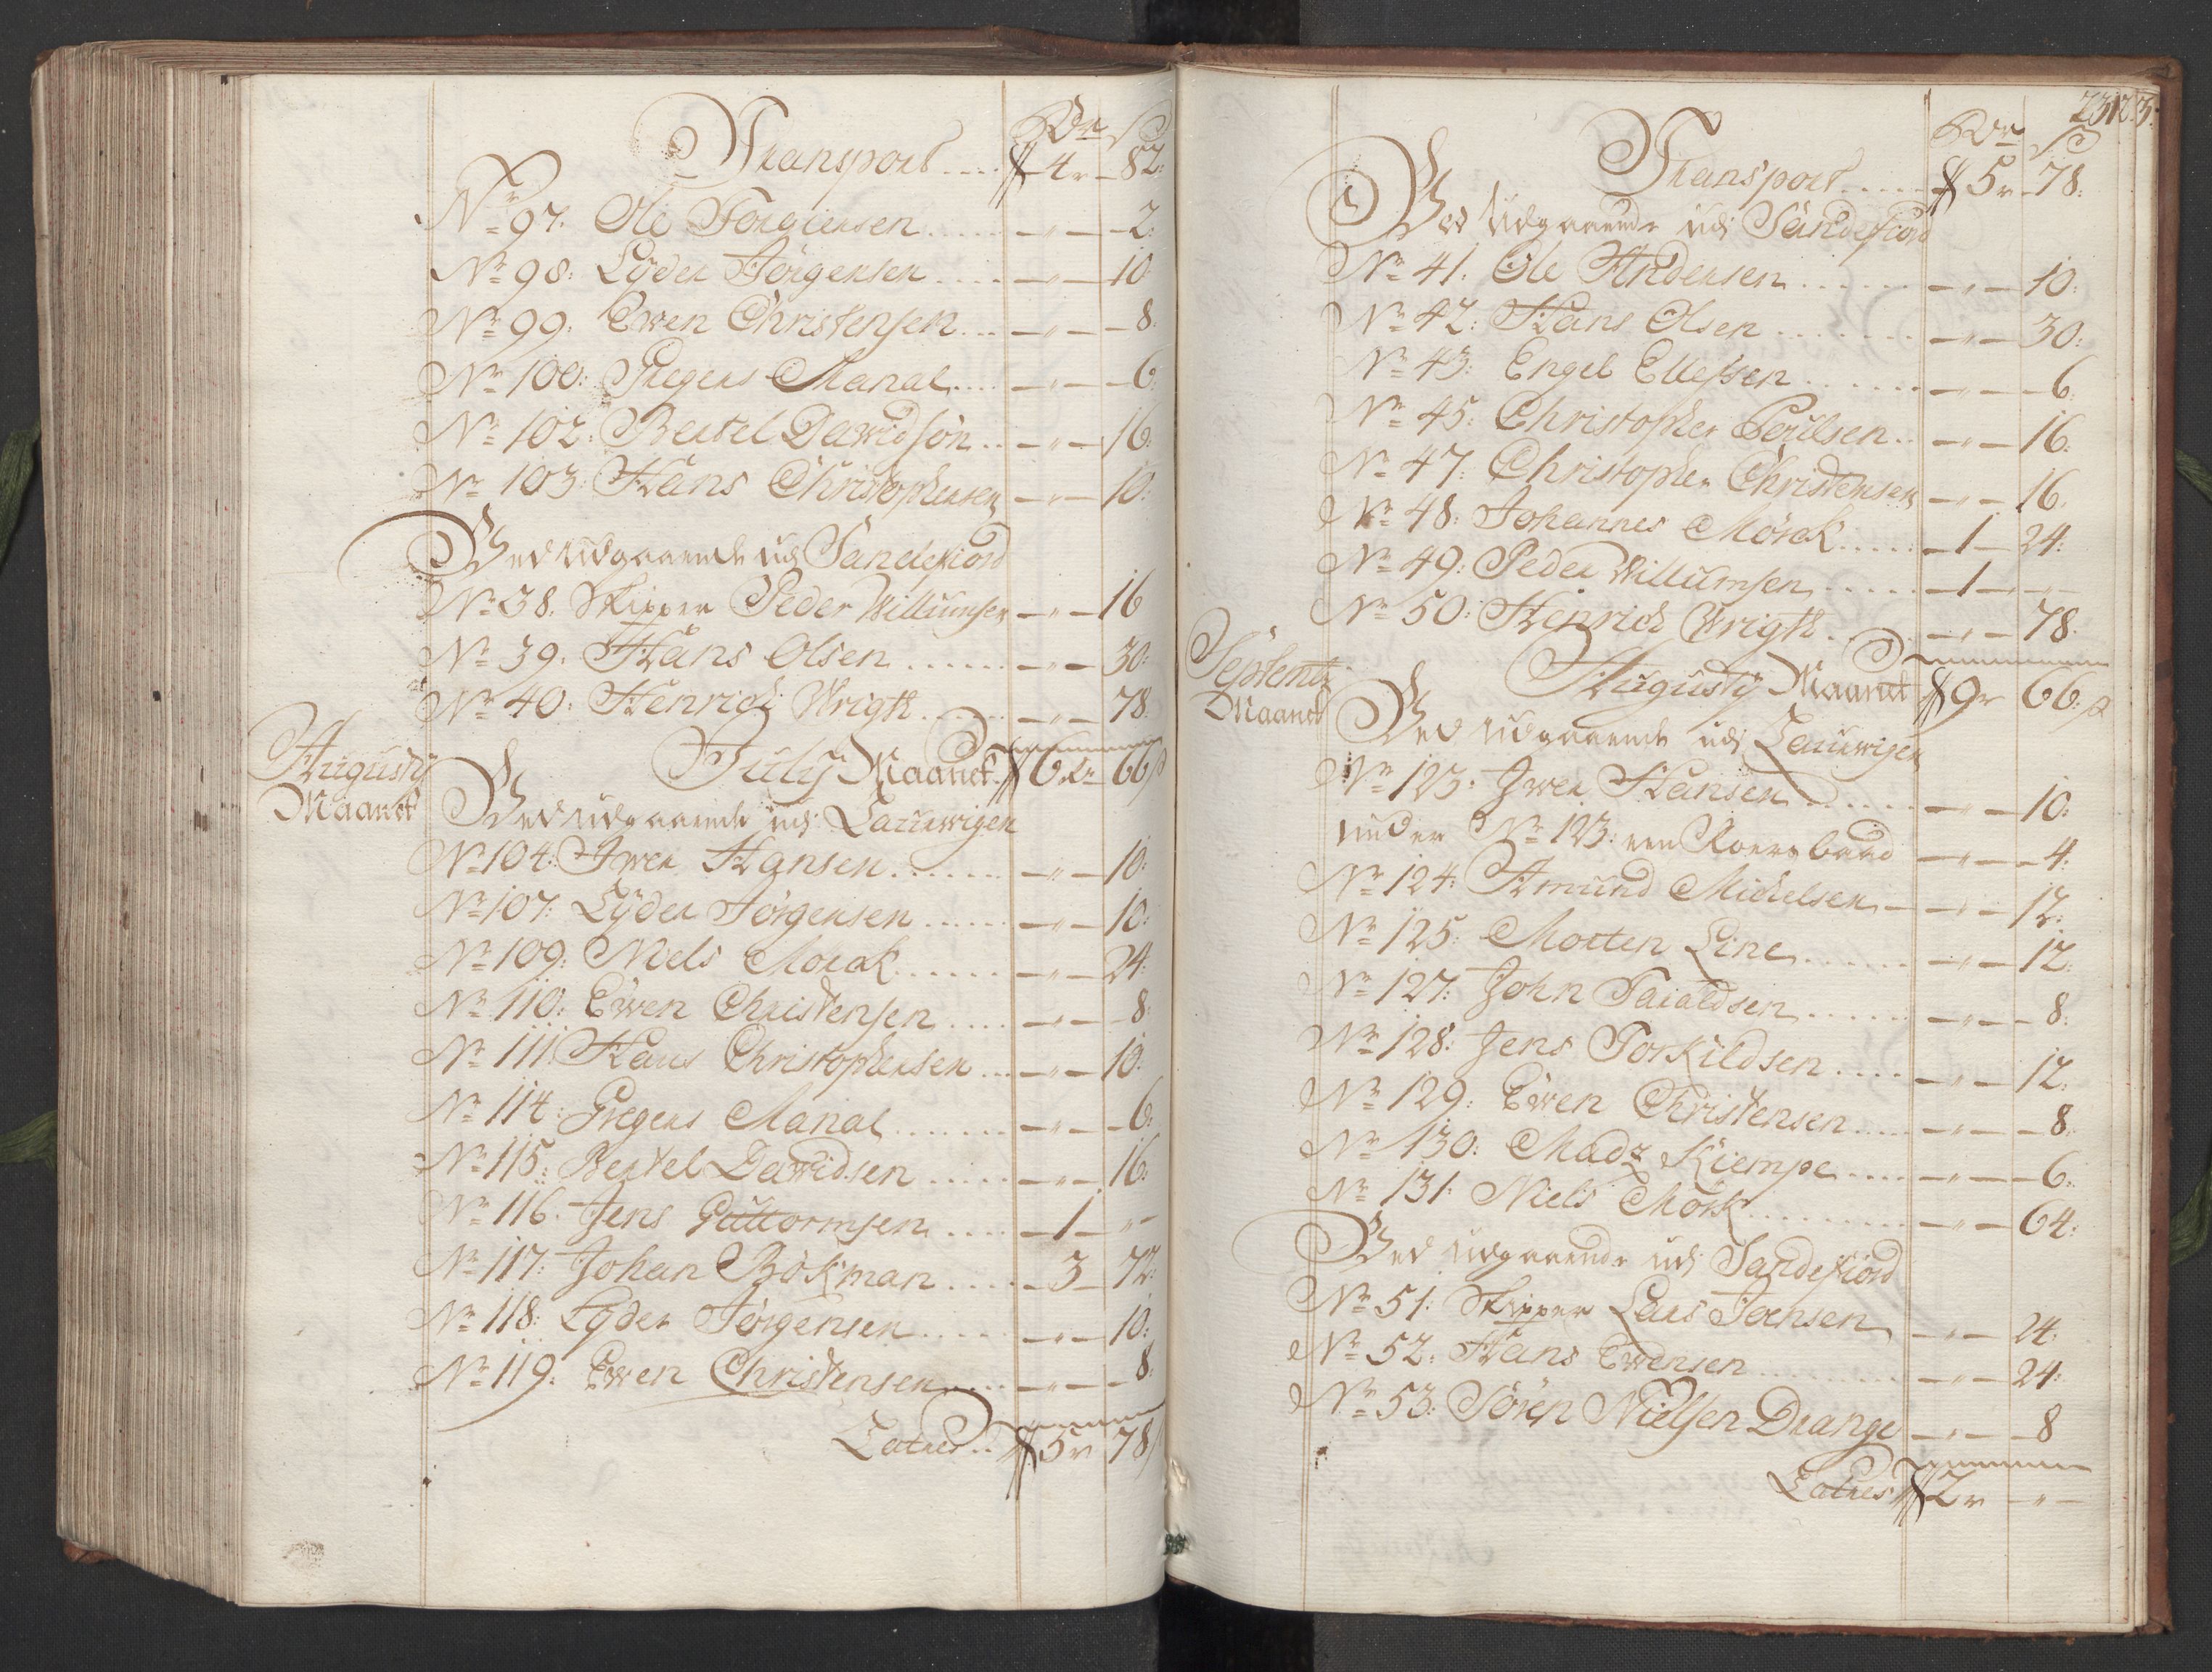 Rdr ß
Transport .... 4r 82:
Nr 97. Ole Torgiersen ..... - " - 2:
Nr 98: Lyder Jørgensen .... - " - 10
Nr 99: Ewen Christensen ... - " - 8:
Nr 100: Gregers Manal .... - " - 6:
Nr 102: Bertel Dawidsøn .. - " - 16:
Nr 103: Hans Christophersen - " - 10:
Ved udgaaende udj Sandefiord
Nr 38. Skipper Peder Willumsen - " - 16
Nr 39. Hans Olsen ...... - " - 30:
Nr 40: Henrich Wrigth ..... - " - 78.
July Maanet 6 r 66 ß
Augusty
Maanet
Ved udgaaende udj Laurwigen
Nr 104: Iwer Hansen ...... - " - 10:
Nr 107: Lyder Jørgensen ..... - " - 10:
Nr 109: Niels Mørck ...... - " - 24:
Nr 110: Ewen Christensen .... - " - 8:
Nr 111: Hans Christophersen ... - " - 10:
Nr 114: Gregers Manal ...... - " - 6:
Nr 115: Bertel Dawidsen ..... - " - 16:
Nr 116. Jens Guttormsen .... - 1 - "
Nr 117: Johan Bökman .... - 3 - 72:
Nr 118: Lyder Jørgensen .... - " - 10:
Nr 119. Ewen Christensen .... - " - 8:
Latus .. 5 r 78 ß
Rdr ß
Transport ..... 5 r 78:
Ved Udgaaende udj Sandefiord
Nr 41. Ole Andersen ...... - " - 10:
Nr 42: Hans Olsen ....... - " - 30:
Nr 43: Engel Ellefsen ...... - " - 6:
Nr 45: Christopher Poulsen .. - " - 16:
Nr 47: Christopher Christensen - " - 16.
Nr 48: Johannes Mørck ..... - 1 - 24:
Nr 49: Peder Willumsen ..... - 1 - "
Nr 50: Henrich Wrigth .... - " - 78.
Augusty Maanet 9 r 66: ß
Septemb:
Maanet
Ved udgaaende udj Laurwigen
Nr 123: Iwer Hansen ..... - " - 10:
under Nr 123: een Roers baad - " - 4:
Nr 124: Amund Michelsen - " - 12:
Nr 125: Morten Line ...... - " - 12:
Nr 127: John Taraldsen ..... - " - 8:
Nr 128: Jens Torkildsen .... - " - 12:
Nr 129: Ewen Christensen .... - " - 8:
Nr 130: Madz Kiempe .... - " - 6:
Nr 131: Niels Mörk ......... - " - 64:
Ved udgaaende udj Sandefiord
Nr 51: Skipper Lars Jensen - " - 24:
Nr 52: Hans Ewensen ........ - " - 24:
Nr 53: Søren Nielsen Drange - " - 8
Latus 2 r - " -